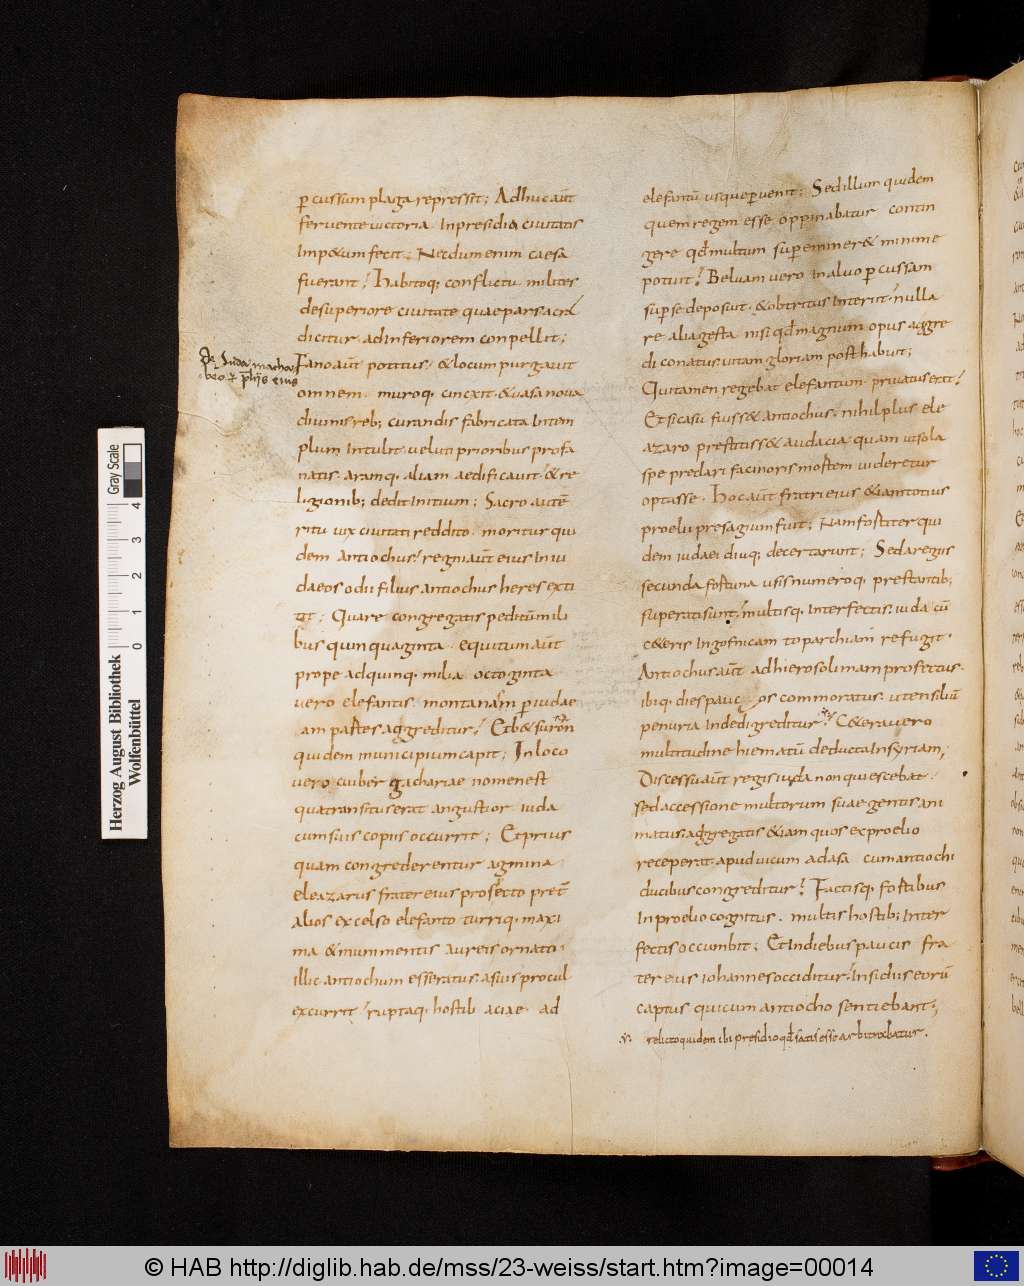 p cussum plaga repressit; Adhuc aut
fervente uictoria. Inpresidia ciuitatis
Imp&um fecit; Necdum enim caesa
fuerant; Habitoq; conflictu milites
desuperiore ciuitate quae pars acra
dicitur ad inferiorem conpellit;
Fano aut potitus; & locum purgauit
omnem. muroq; cinxit. & uasa noua
diuinis reb; curandis fabricata. Intem
plum Intulit. ueluti prioribus profa
natis. aram q; aliam aedificauit. & re
ligionib; dedit Initium; Sacro aute
ritu uix ciuitati reddito. moritur qui
dem Antiochus; regni aut eius Iniu
daeos odii filius antiochus heres exti
tit; Quare congregatis peditu mili
bus quinquaginta. equitum aut
prope ad quinq; milia. octoginta
uero elefantis. montanam p iudae
am partes aggreditur; Et b&suron
quidem municipium capit; In loco
uero cui b&zachariae nomen est
qua transitus erat angustior iuda
cum suis copiis occurrit; Et prius
quam congrederentur agmina
eleazarus frater eius prospecto pret
alios excelso elefanto turriq; maxi
ma & munimentis aureis ornato.
illic antiochum esse ratus. a suis procul
excurrit; ruptaq; hostib acie. ad
elefantu usque peruenit; Sed illum quidem
quem regem esse oppinabatur contin
gere qd multum superemineret & minime
potuit; Beluam uero In aluo p cussam
sup se deposuit. & obtritus Interiit; nulla
re alia gesta nisi qd magnum opus aggre
di conatus. uitam gloriam posthabuit;
Qui tamen regebat elefantum priuatus erat;
Et si casu fuiss& antiochus. nihil plus ele
azaro prestitiss& audacia. quam ut sola
spe preclari facinoris mortem uideretur
optasse. Hoc aut fratri eius & iam totius
proelii presagium fuit; Nam fortiter qui
dem iudaei diuq; decertarunt; Sed a regiis
secunda fortuna usis numeroq; prestantib;
superati sunt; multisq; Interfectis. iuda cu
c&eris Ingofnicam toparchiam refugit.
Antiochus aut ad hierosolimam profectus.
ibiq; dies paucos commoratus. utensiliu
penuria Inde digreditur; C&era uero
multitudine hiematu deducta In syriam;
Discessu aut regis iuda non quiescebat.
sed accessione multorum suae gentis ani
matus. aggregatis & iam quos ex proelio
receperat. apud uicum adasa cum antiochi
ducibus congreditur; Factisq; fortibus
In proelio cognitus. multis hostib; Inter
fectis occumbit; Et In diebus paucis fra
ter eius iohannes occiditur. Insidiis eoru
captus qui cum antiocho sentiebant;
relicto quidem ibi presidio qd satis esse arbitrabatur.
De Iuda macha
beo et plijs eius
Gray Scale
0 1 2 3 4
Herzog August Bibliothek
Wolfenbüttel
© HAB http://diglib.hab.de/mss/23-weiss/start.htm?image=00014